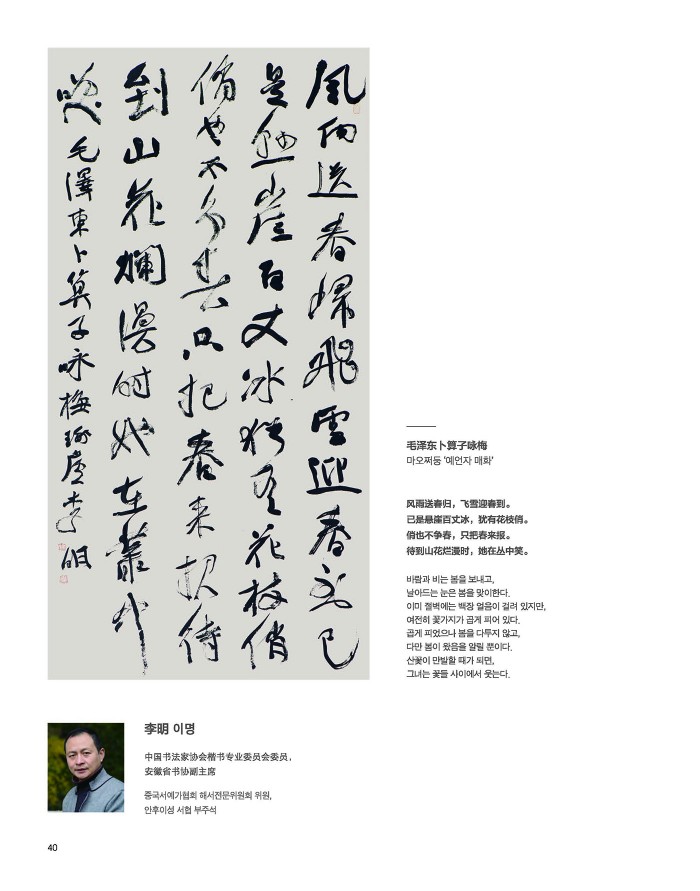 風雨送春歸飛雪迎春到已
是懸崖百丈冰猶有花枝俏
俏也不爭春只把春來報待
到山花爛漫時她在叢中
咲毛澤東卜算子咏梅 李明
毛泽东卜算子咏梅
마오쩌둥 ‘예언자 매화’
风雨送春归，飞雪迎春到。
已是悬崖百丈冰，犹有花枝俏。
俏也不争春，只把春来报。
待到山花烂漫时，她在丛中笑。
바람과 비는 봄을 보내고,
날아드는 눈은 봄을 맞이한다.
이미 절벽에는 백장 얼음이 걸려 있지만,
여전히 꽃가지가 곱게 피어 있다.
곱게 피었으나 봄을 다투지 않고,
다만 봄이 왔음을 알릴 뿐이다.
산꽃이 만발할 때가 되면,
그녀는 꽃들 사이에서 웃는다.
李明 이명
中国书法家协会楷书专业委员会委员，
安徽省书协副主席
중국서예가협회 해서전문위원회 위원,
안후이성 서협 부주석
40